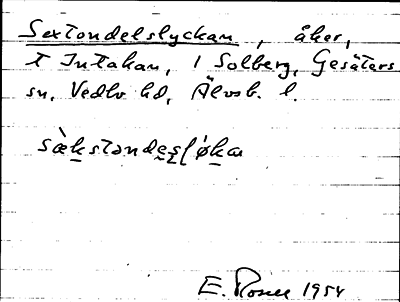 Sextondelslyckan, åker,
t Intakan, 1 Solberg, Gesäters
sn, Vedbo hd, Älvsb. l.
sæ̀kstondes(ǿka
E. Rosell 1954